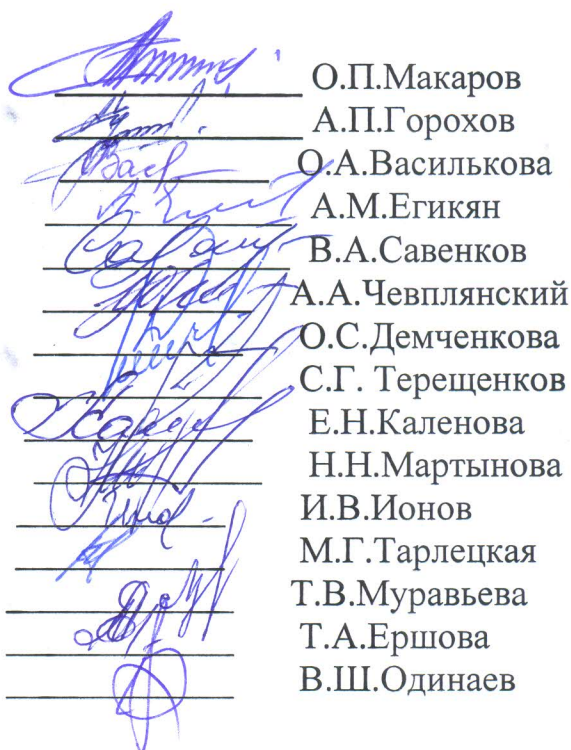 О.П.Макаров
А.П.Горохов
О.А.Василькова
А.М.Егикян
В.А.Савенков
А.А.Чевплянский
О.С.Демченкова
С.Г. Терещенков
Е.Н.Каленова
Н.Н.Мартынова
И.В.Ионов
М.Г.Тарлецкая
Т.В.Муравьева
Т.А.Ершова
В.Ш.Одинаев